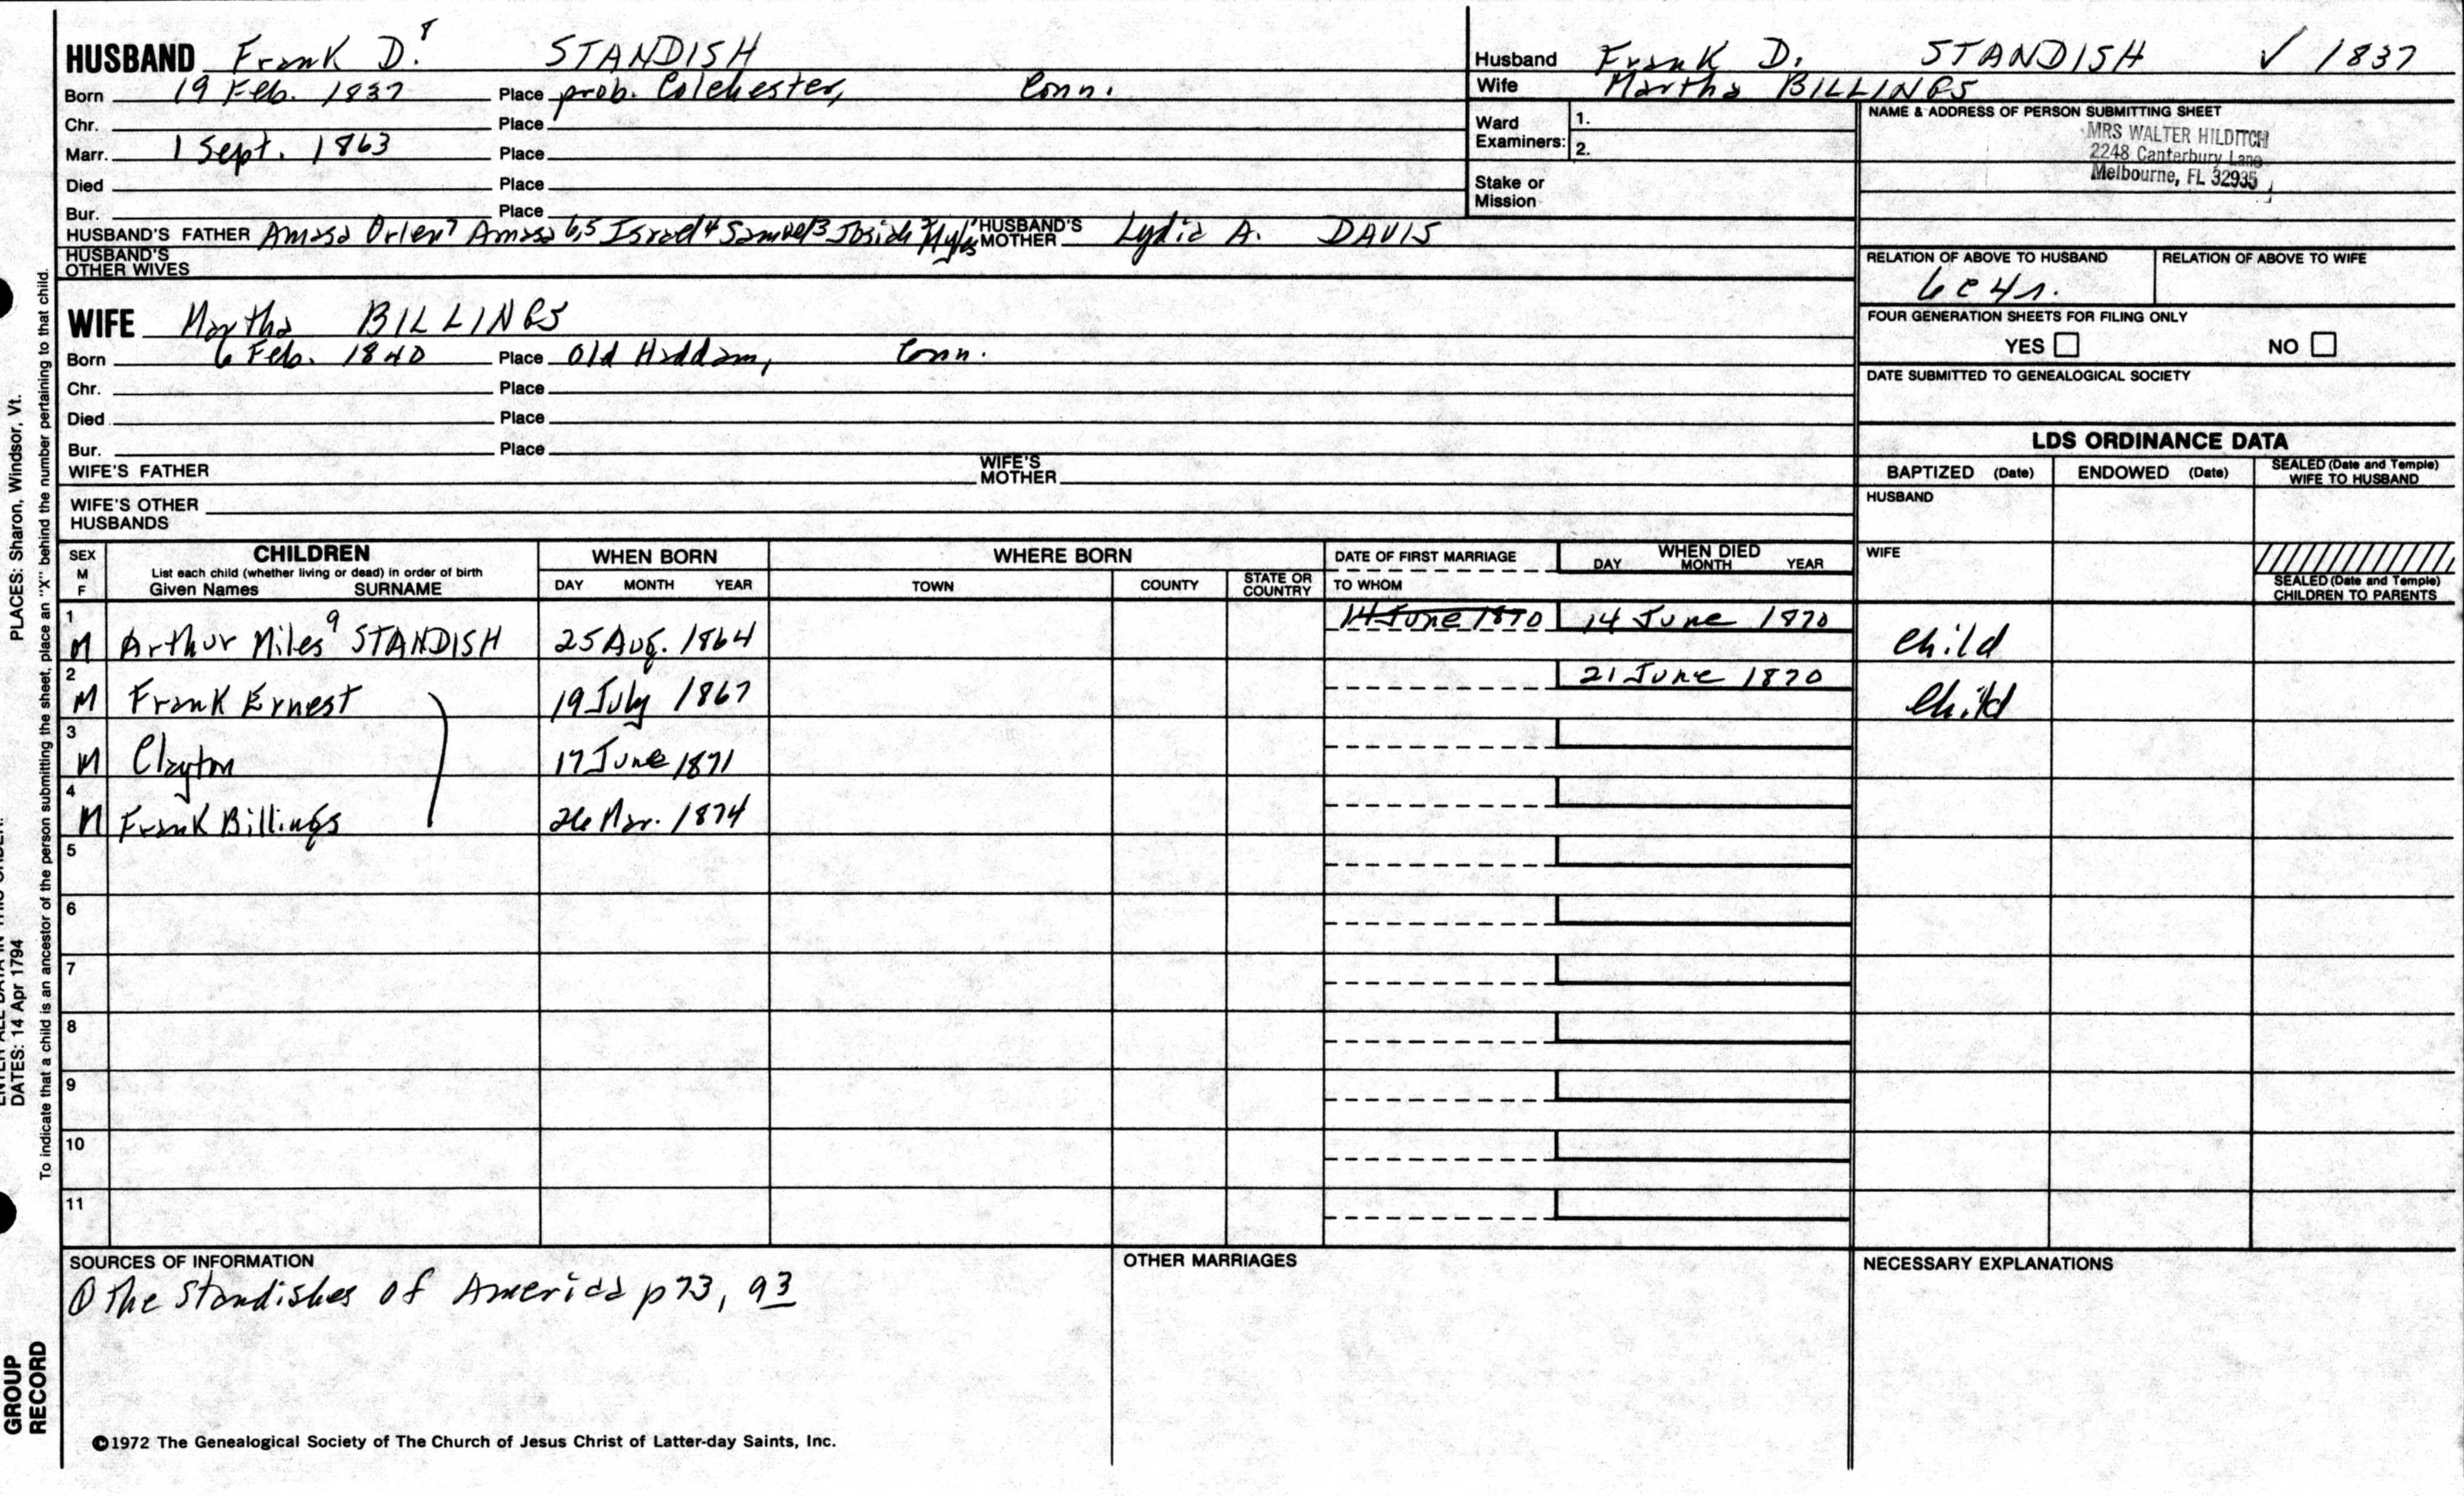 HUSBAND Frank D.8 STANDISH
Born 19 Feb. 1837 Place prob. Colchester, Conn.
Chr. Place
Marr. 1 Sept. 1863 Place
Died Place
Bur. Place
HUSBAND'S FATHER Amasa Orlen7 Amasa 6,5 Israel4 Samuel3 Josiah2 Myles1 HUSBAND'S MOTHER Lydia A. DAVIS
HUSBAND'S OTHER WIVES
Husband Frank D. STANDISH ✓ 1837
Wife Martha BILLINGS
Ward Examiners: 1.
2.
Stake or Mission
NAME & ADDRESS OF PERSON SUBMITTING SHEET
MRS WALTER HILDITCH
2248 Canterbury Lane
Melbourne, FL 32935
RELATION OF ABOVE TO HUSBAND RELATION OF ABOVE TO WIFE
6c4r.
FOUR GENERATION SHEETS FOR FILING ONLY
YES NO
DATE SUBMITTED TO GENEALOGICAL SOCIETY
WIFE Martha BILLINGS
Born 6 Feb. 1840 Place Old Haddam, Conn.
Chr. Place
Died Place
Bur. Place
WIFE'S FATHER WIFE'S MOTHER
WIFE'S OTHER HUSBANDS
LDS ORDINANCE DATA
BAPTIZED (Date) ENDOWED (Date) SEALED (Date and Temple) WIFE TO HUSBAND
HUSBAND
WIFE
SEALED (Date and Temple) CHILDREN TO PARENTS
SEX M F
CHILDREN
List each child (whether living or dead) in order of birth
Given Names SURNAME
WHEN BORN
DAY MONTH YEAR
WHERE BORN
TOWN COUNTY STATE OR COUNTRY
DATE OF FIRST MARRIAGE
TO WHOM
WHEN DIED
DAY MONTH YEAR
1 M Arthur Miles9 STANDISH 25 Aug. 1864 14 June 1870 14 June 1870 Child
2 M Frank Ernest 19 July 1867 21 June 1870 Child
3 M Clayton 17 June 1871
4 M Frank Billings 26 Mar. 1874
5
6
7
8
9
10
11
SOURCES OF INFORMATION
① The Standishes of America p 73, 93
OTHER MARRIAGES
NECESSARY EXPLANATIONS
©1972 The Genealogical Society of The Church of Jesus Christ of Latter-day Saints, Inc.
PLACES: Sharon, Windsor, Vt.
DATES: 14 Apr 1794
To indicate that a child is an ancestor of the person submitting the sheet, place an "X" behind the number pertaining to that child.
GROUP
RECORD